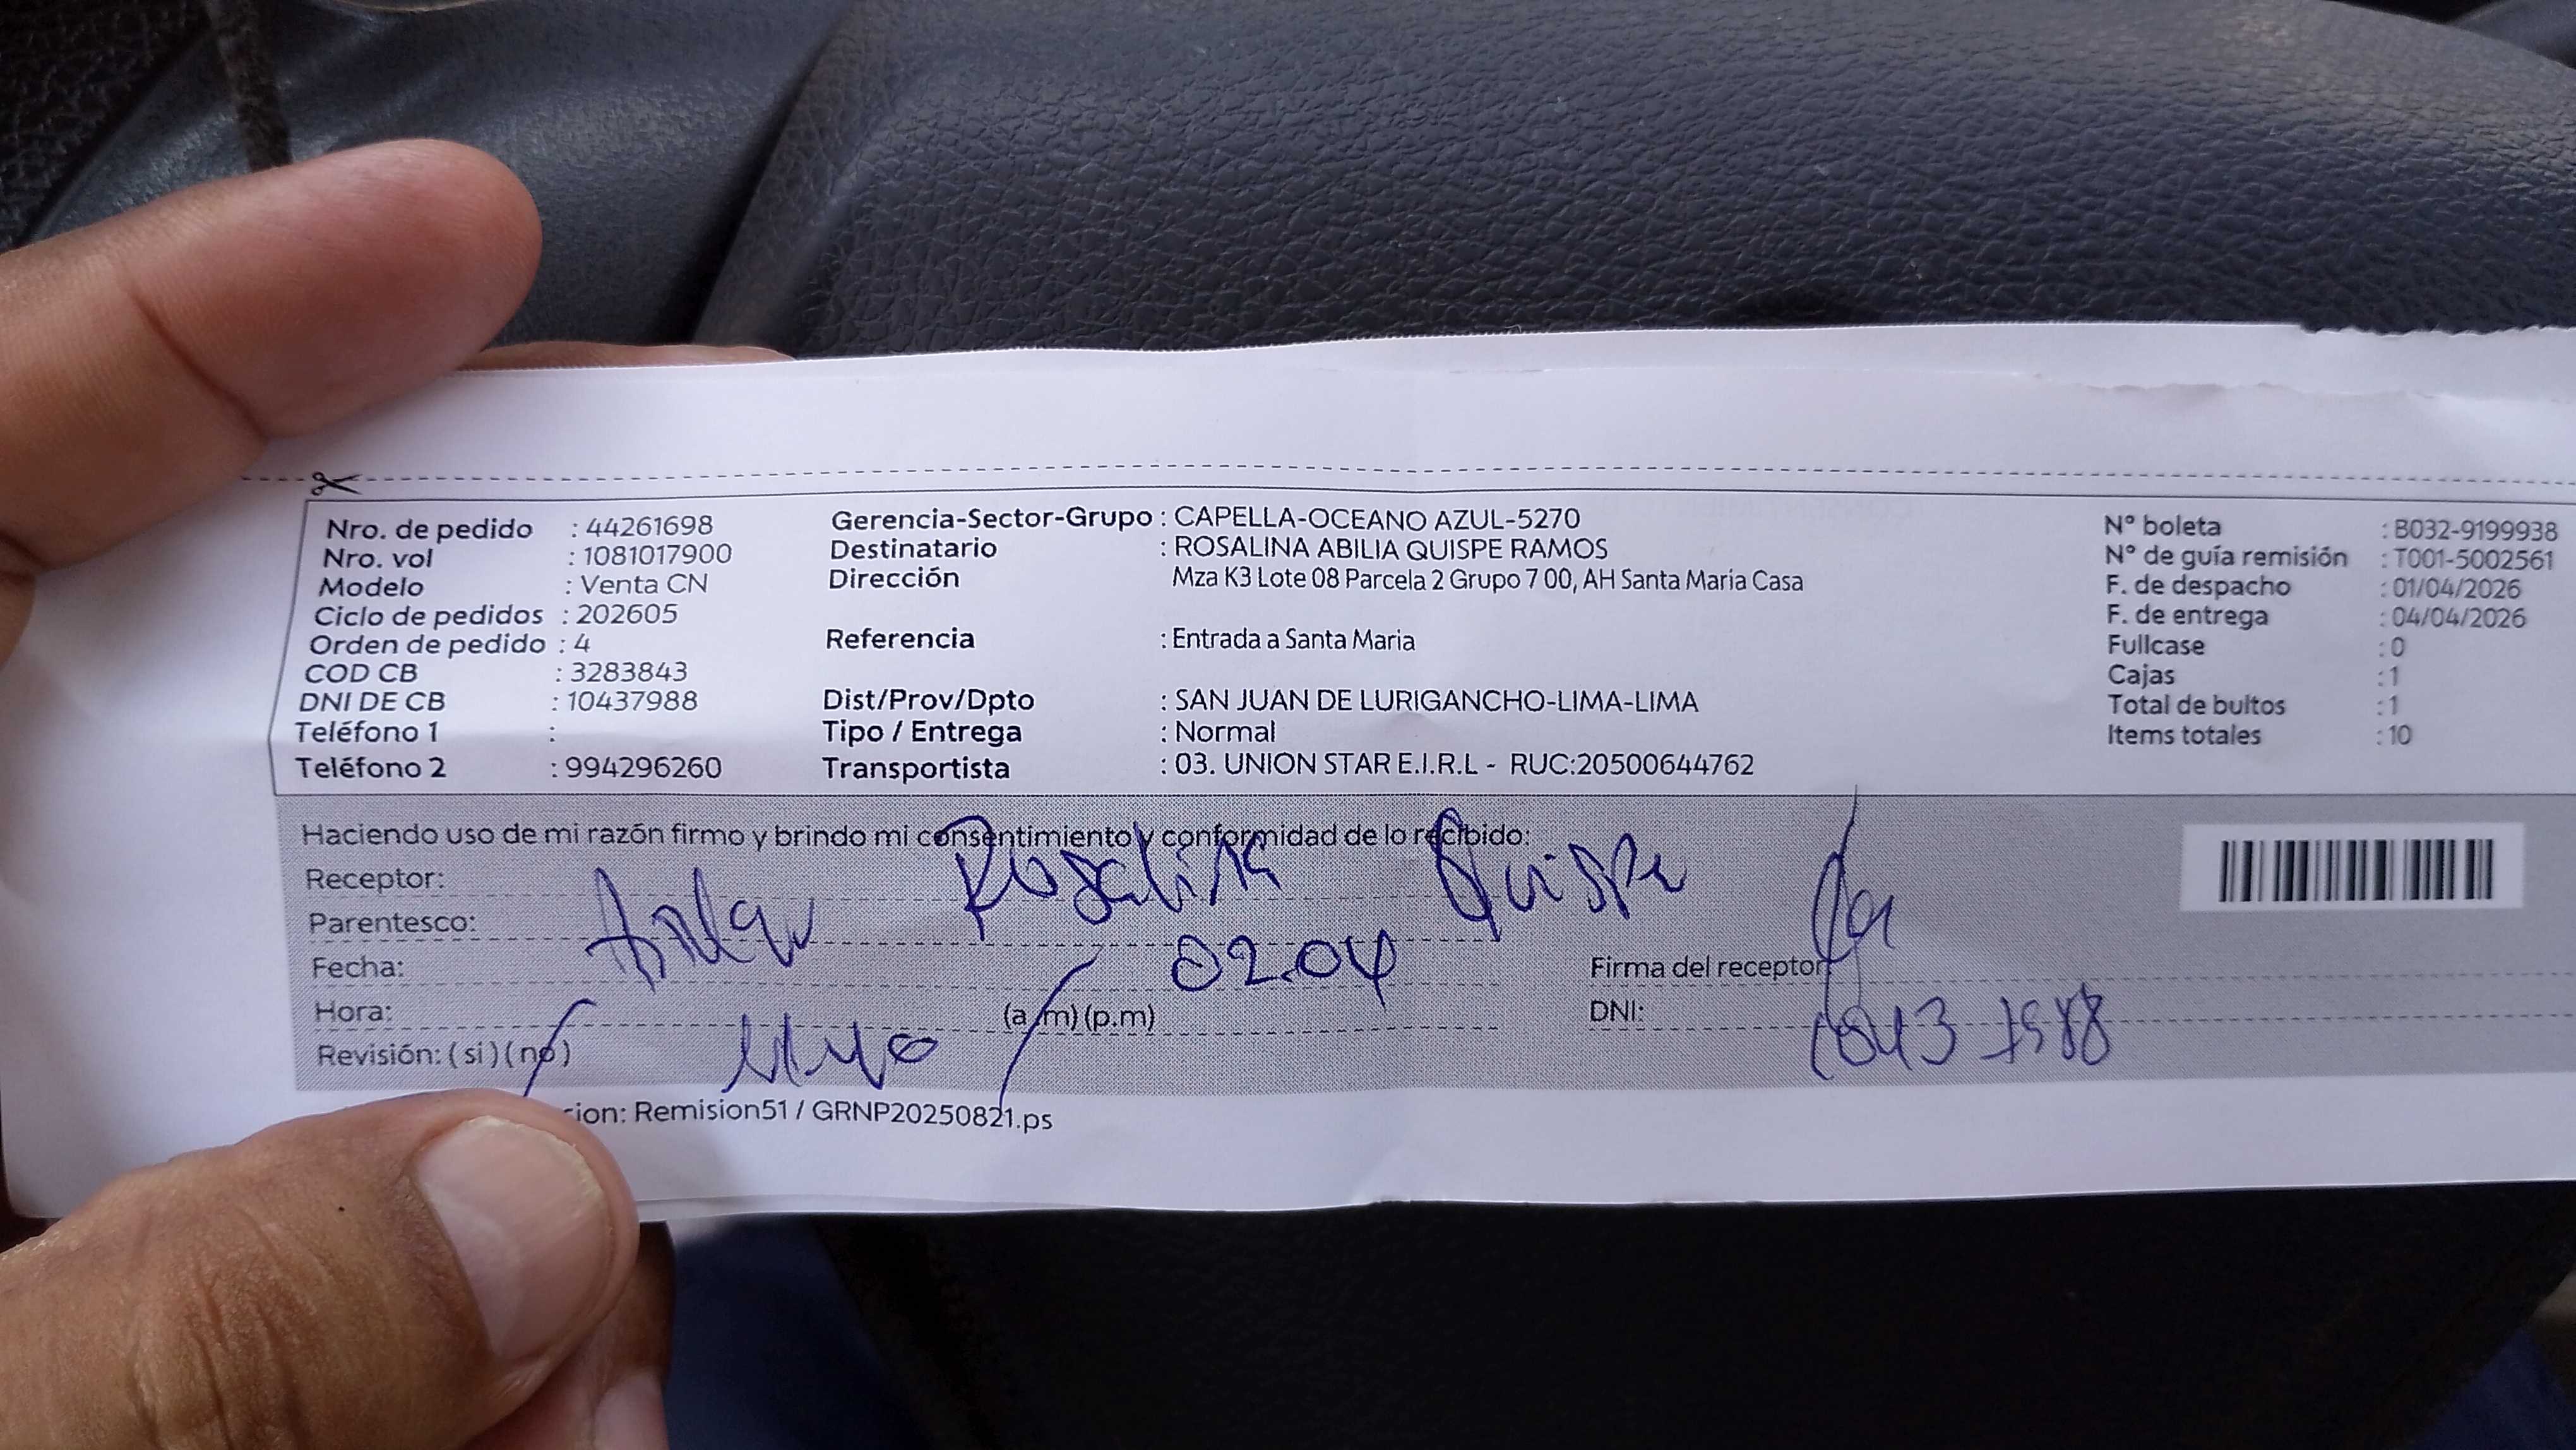 Nro. de pedido : 44261698
Nro. vol : 1081017900
Modelo : Venta CN
Ciclo de pedidos : 202605
Orden de pedido : 4
COD CB : 3283843
DNI DE CB : 10437988
Teléfono 1 :
Teléfono 2 : 994296260
Gerencia-Sector-Grupo : CAPELLA-OCEANO AZUL-5270
Destinatario : ROSALINA ABILIA QUISPE RAMOS
Dirección Mza K3 Lote 08 Parcela 2 Grupo 7 00, AH Santa Maria Casa
Referencia : Entrada a Santa Maria
Dist/Prov/Dpto : SAN JUAN DE LURIGANCHO-LIMA-LIMA
Tipo / Entrega : Normal
Transportista : 03. UNION STAR E.I.R.L - RUC:20500644762
N° boleta : B032-9199938
N° de guía remisión : T001-5002561
F. de despacho : 01/04/2026
F. de entrega : 04/04/2026
Fullcase : 0
Cajas : 1
Total de bultos : 1
Items totales : 10
Haciendo uso de mi razón firmo y brindo mi consentimiento y conformidad de lo recibido:
Receptor: Rosalina Quispe
Parentesco:
Fecha: 02.04
Firma del receptor
Hora: (a.m) (p.m)
DNI: 10437988
Revisión: (si) (no)
ion: Remision51 / GRNP20250821.ps